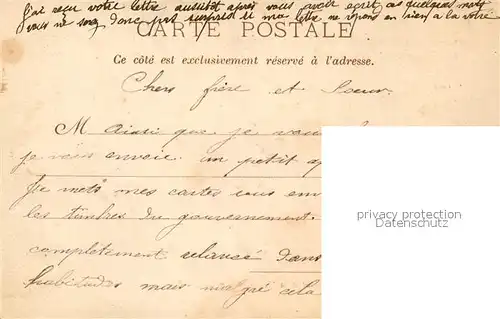 J'ai reçu votre lettre aussitot apres vous avoir ecrit ces quelques mots
vous ne soyez donc pas surpris si ma lettre ne repond en rien a la votre
CARTE POSTALE
Ce côté est exclusivement réservé à l'adresse.
Chers frère et Soeur.
M Ainsi que je vous
je vous envoie un petit ap
Je mets mes cartes sous en
les timbres du gouvernement.
completement relancé dans
habitudes mais malgré cela
privacy protection
Datenschutz